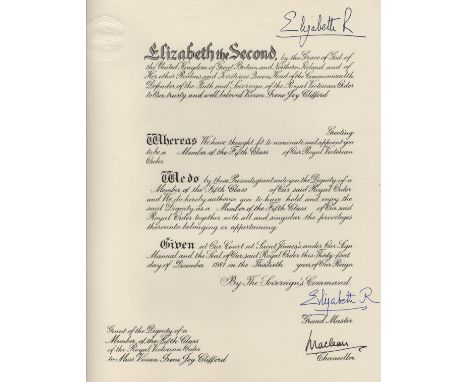 Elizabeth R
Elizabeth the Second, by the Grace of God of
the United Kingdom of Great Britain and Northern Ireland and of
Her other Realms and Territories Queen, Head of the Commonwealth,
Defender of the Faith and Sovereign of the Royal Victorian Order
to Our trusty and well beloved Vivien Irene Joy Clifford
Greeting
Whereas We have thought fit to nominate and appoint you
to be a Member of the Fifth Class of Our Royal Victorian
Order
We do by these Presents grant unto you the Dignity of a
Member of the Fifth Class of Our said Royal Order
and We do hereby authorise you to have hold and enjoy the
said Dignity as a Member of the Fifth Class of Our said
Royal Order together with all and singular the privileges
thereunto belonging or appertaining.
Given at Our Court at Saint James's under Our Sign
Manual and the Seal of Our said Royal Order this Thirty-first
day of December 1981 in the Thirtieth year of Our Reign
By The Sovereign's Command.
Elizabeth R
Grand Master
Grant of the Dignity of a
Member of the Fifth Class
of the Royal Victorian Order
to Miss Vivien Irene Joy Clifford
Maclean
Chancellor